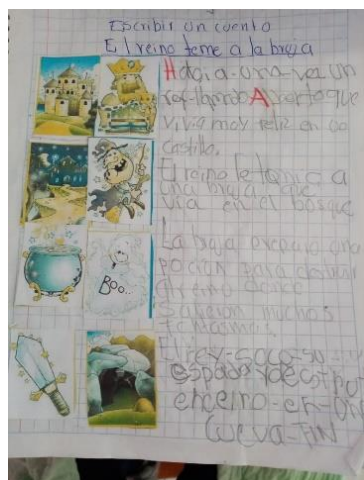 Escribir un cuento
El reino teme a la bruja
Había-una-vez un
rey-llamado Alberto que
vivia muy feliz en su
castillo.
El reino le temia a
una bruja que
vía en el bosque
La bruja preparó una
poción para destruir
al reino donde
salieron muchos
fantasmas
El rey-saco-su
espada y
encerro-en-una
cueva-FIN
BOO...